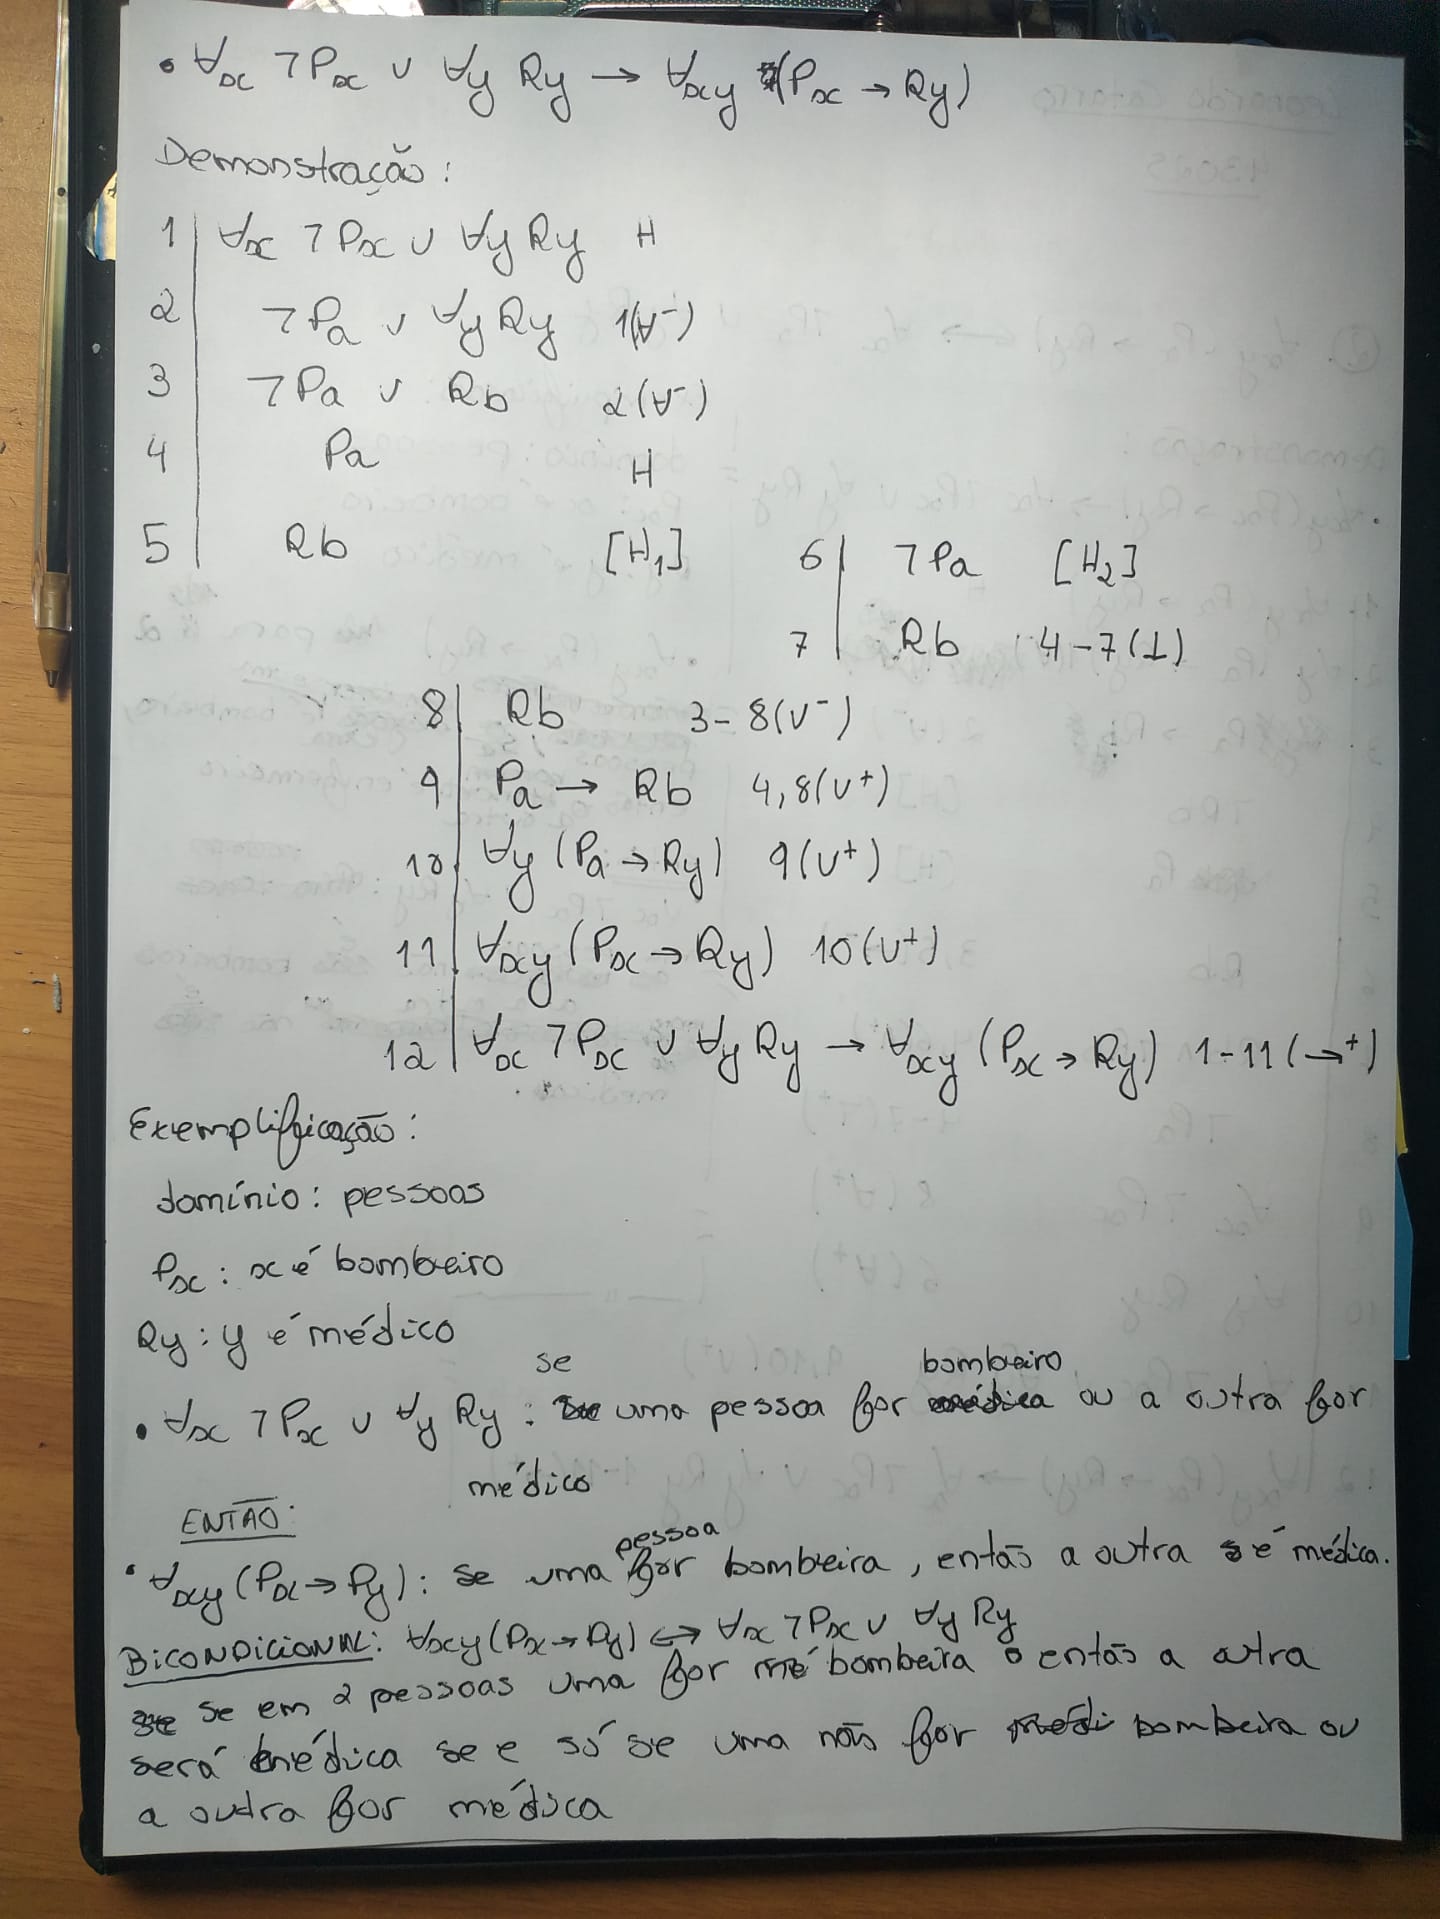 • ∀x ¬Px ∨ ∀y Ry → ∀xy (Px → Ry)
Demonstração:
1 | ∀x ¬Px ∨ ∀y Ry H
2 | ¬Pa ∨ ∀y Ry 1(∀-)
3 | ¬Pa ∨ Rb 2(∀-)
4 | Pa H
5 | Rb [H1] 6 | ¬Pa [H2]
7 | Rb 4-7(⊥)
8 | Rb 3-8(∨-)
9 | Pa → Rb 4,8(∨+)
10 | ∀y (Pa → Ry) 9(∨+)
11 | ∀xy (Px → Ry) 10(∨+)
12 | ∀x ¬Px ∨ ∀y Ry → ∀xy (Px → Ry) 1-11(→+)
Exemplificação:
domínio: pessoas
Px: x é bombeiro
Ry: y é médico
• ∀x ¬Px ∨ ∀y Ry: se uma pessoa for bombeiro ou a outra for
médico
ENTÃO:
• ∀xy (Px → Py): se uma pessoa for bombeira, então a outra é médica.
BICONDICIONAL: ∀xy (Px → Ry) ↔ ∀x ¬Px ∨ ∀y Ry
se em 2 pessoas uma for bombeira então a outra
será médica se e só se uma não for bombeira ou
a outra for médica